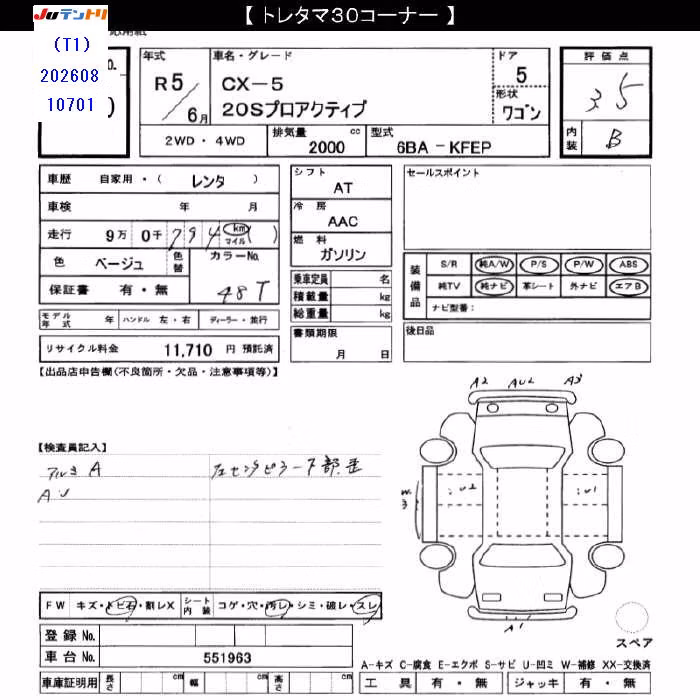 【トレタマ30コーナー】
JUテントリ
(T1)
202608
10701
年式
R5
6月
車名・グレード
CX-5
20Sプロアクティブ
ドア
5
形状
ワゴン
評価点
3.5
内装
B
2WD・4WD
排気量
2000
cc
型式
6BA-KFEP
車歴
自家用・(レンタ)
車検
年
月
走行
9万
0千
794
km
マイル
( )
色
ベージュ
色替
カラーNo.
48T
保証書
有・無
モデル年式
年
ハンドル
左・右
ディーラー・並行
リサイクル料金
11,710
円 預託済
シフト
AT
冷房
AAC
燃料
ガソリン
乗車定員
名
積載量
kg
総重量
kg
書類期限
月
日
セールスポイント
装備品
S/R
純A/W
P/S
P/W
ABS
純TV
純ナビ
革シート
外ナビ
エアB
ナビ型番:
後日品
【出品店申告欄(不良箇所・欠品・注意事項等)】
【検査員記入】
アルミ A
AU
A2
AU2
A3
W3
U2
U1
A1
スペア
FW
キズ・トビ石・割レX
シート内装
コゲ・穴・汚レ・シミ・破レ・スレ
登録No.
車台No.
551963
車庫証明用
長さ
cm
幅
cm
高さ
cm
A-キズ C-腐食 E-エクボ S-サビ U-凹ミ W-補修 XX-交換済
工具
有・無
ジャッキ
有・無